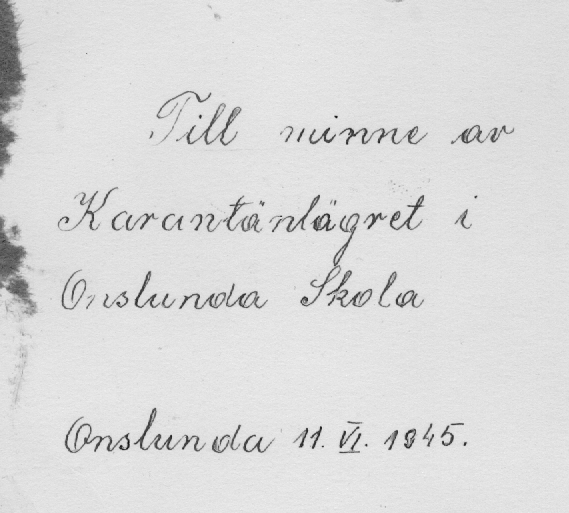 Till minne av
Karantänlägret i
Onslunda Skola
Onslunda 11. VI. 1945.